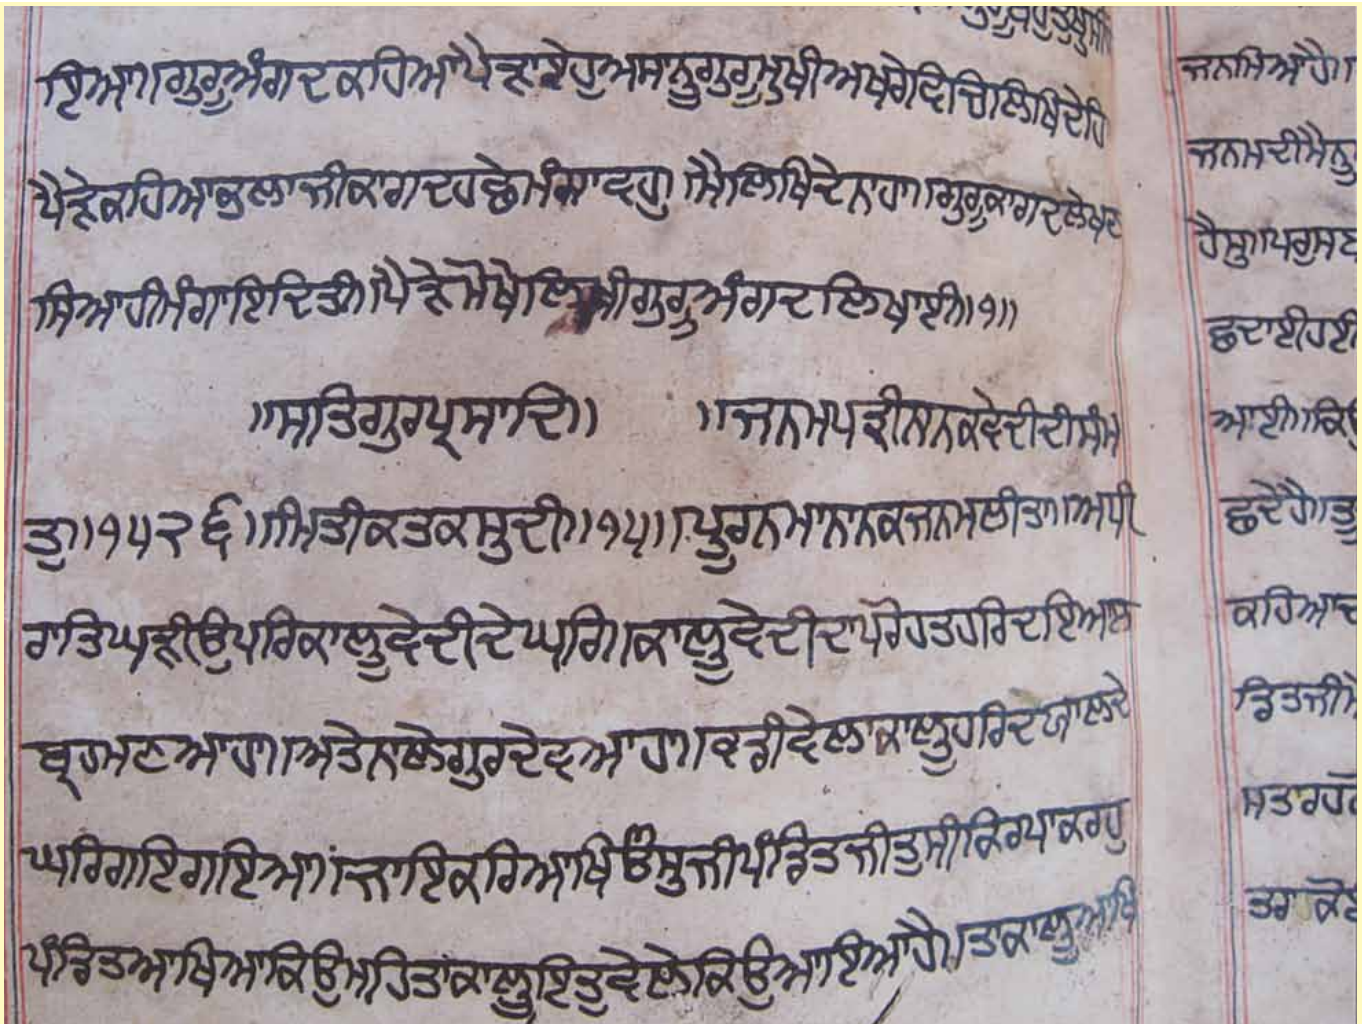 ਇਆ॥ਗੁਰੂਅੰਗਦਕਹਿਆਪੈੜਾਏਹੁਅਸਾਨੂਗੁਰਮੁਖੀਅਖਰੋਵਿਚਿਲਿਖਿਦੇਹਿ
ਪੈੜੇਕਹਿਆਭਲਾਜੀਕਾਗਦਹਛੇਮੰਗਾਵਹੁ।ਮੈਲਿਖਿਦੇਨਾਹਾ॥ਗੁਰੂਕਾਗਦਲੇਖਣ
ਸਿਆਹੀਮੰਗਾਇਦਿਤੀ॥ਪੈੜੇਮੋਖੇਲਿਖੀਗੁਰੂਅੰਗਦਲਿਖਾਈ॥੧॥
॥ਸਤਿਗੁਰਪ੍ਰਸਾਦਿ॥ ॥ਜਨਮਪਤ੍ਰੀਨਾਨਕਵੇਦੀਦੀਸੰਮ
ਤੁ॥੧੫੨੬॥ਮਿਤੀਕਤਕਸੁਦੀ॥੧੫॥ਪੂਰਨਮਾਨਾਨਕਜਨਮਲੀਤਾ॥ਅਧੀ
ਰਾਤਿਘੜੀਉਪਰਿਕਾਲੂਵੇਦੀਦੇਘਰਿ॥ਕਾਲੂਵੇਦੀਦਾਪਰੋਹਤਹਰਿਦਇਆਲ
ਬ੍ਰਹਮਣਆਹਾ॥ਅਤੇਨਾਲੇਗੁਰਦੇਵਆਹਾ॥ਵਡੀਵੇਲਾਕਾਲੂਹਰਿਦਯਾਲਦੇ
ਘਰਿਗਾਇਗਇਆ॥ਜਾਇਕਰਿਆਖਿਓਸੁਜੀਪੰਡਿਤਜੀਤੁਸੀਕਿਰਪਾਕਰਹੁ
ਪੰਡਿਤਆਖਿਆਕਿਉਮਹਿਤਾਕਾਲੂਇਤੁਵੇਲੇਕਿਉਆਇਆਹੈ॥ਤਾਕਾਲੂਆਖਿ
ਜਨਮਿਆਹੈ॥
ਜਨਮਦੀਮੈਨੂ
ਆਈ॥ਕਿਉ
ਕਹਿਆ